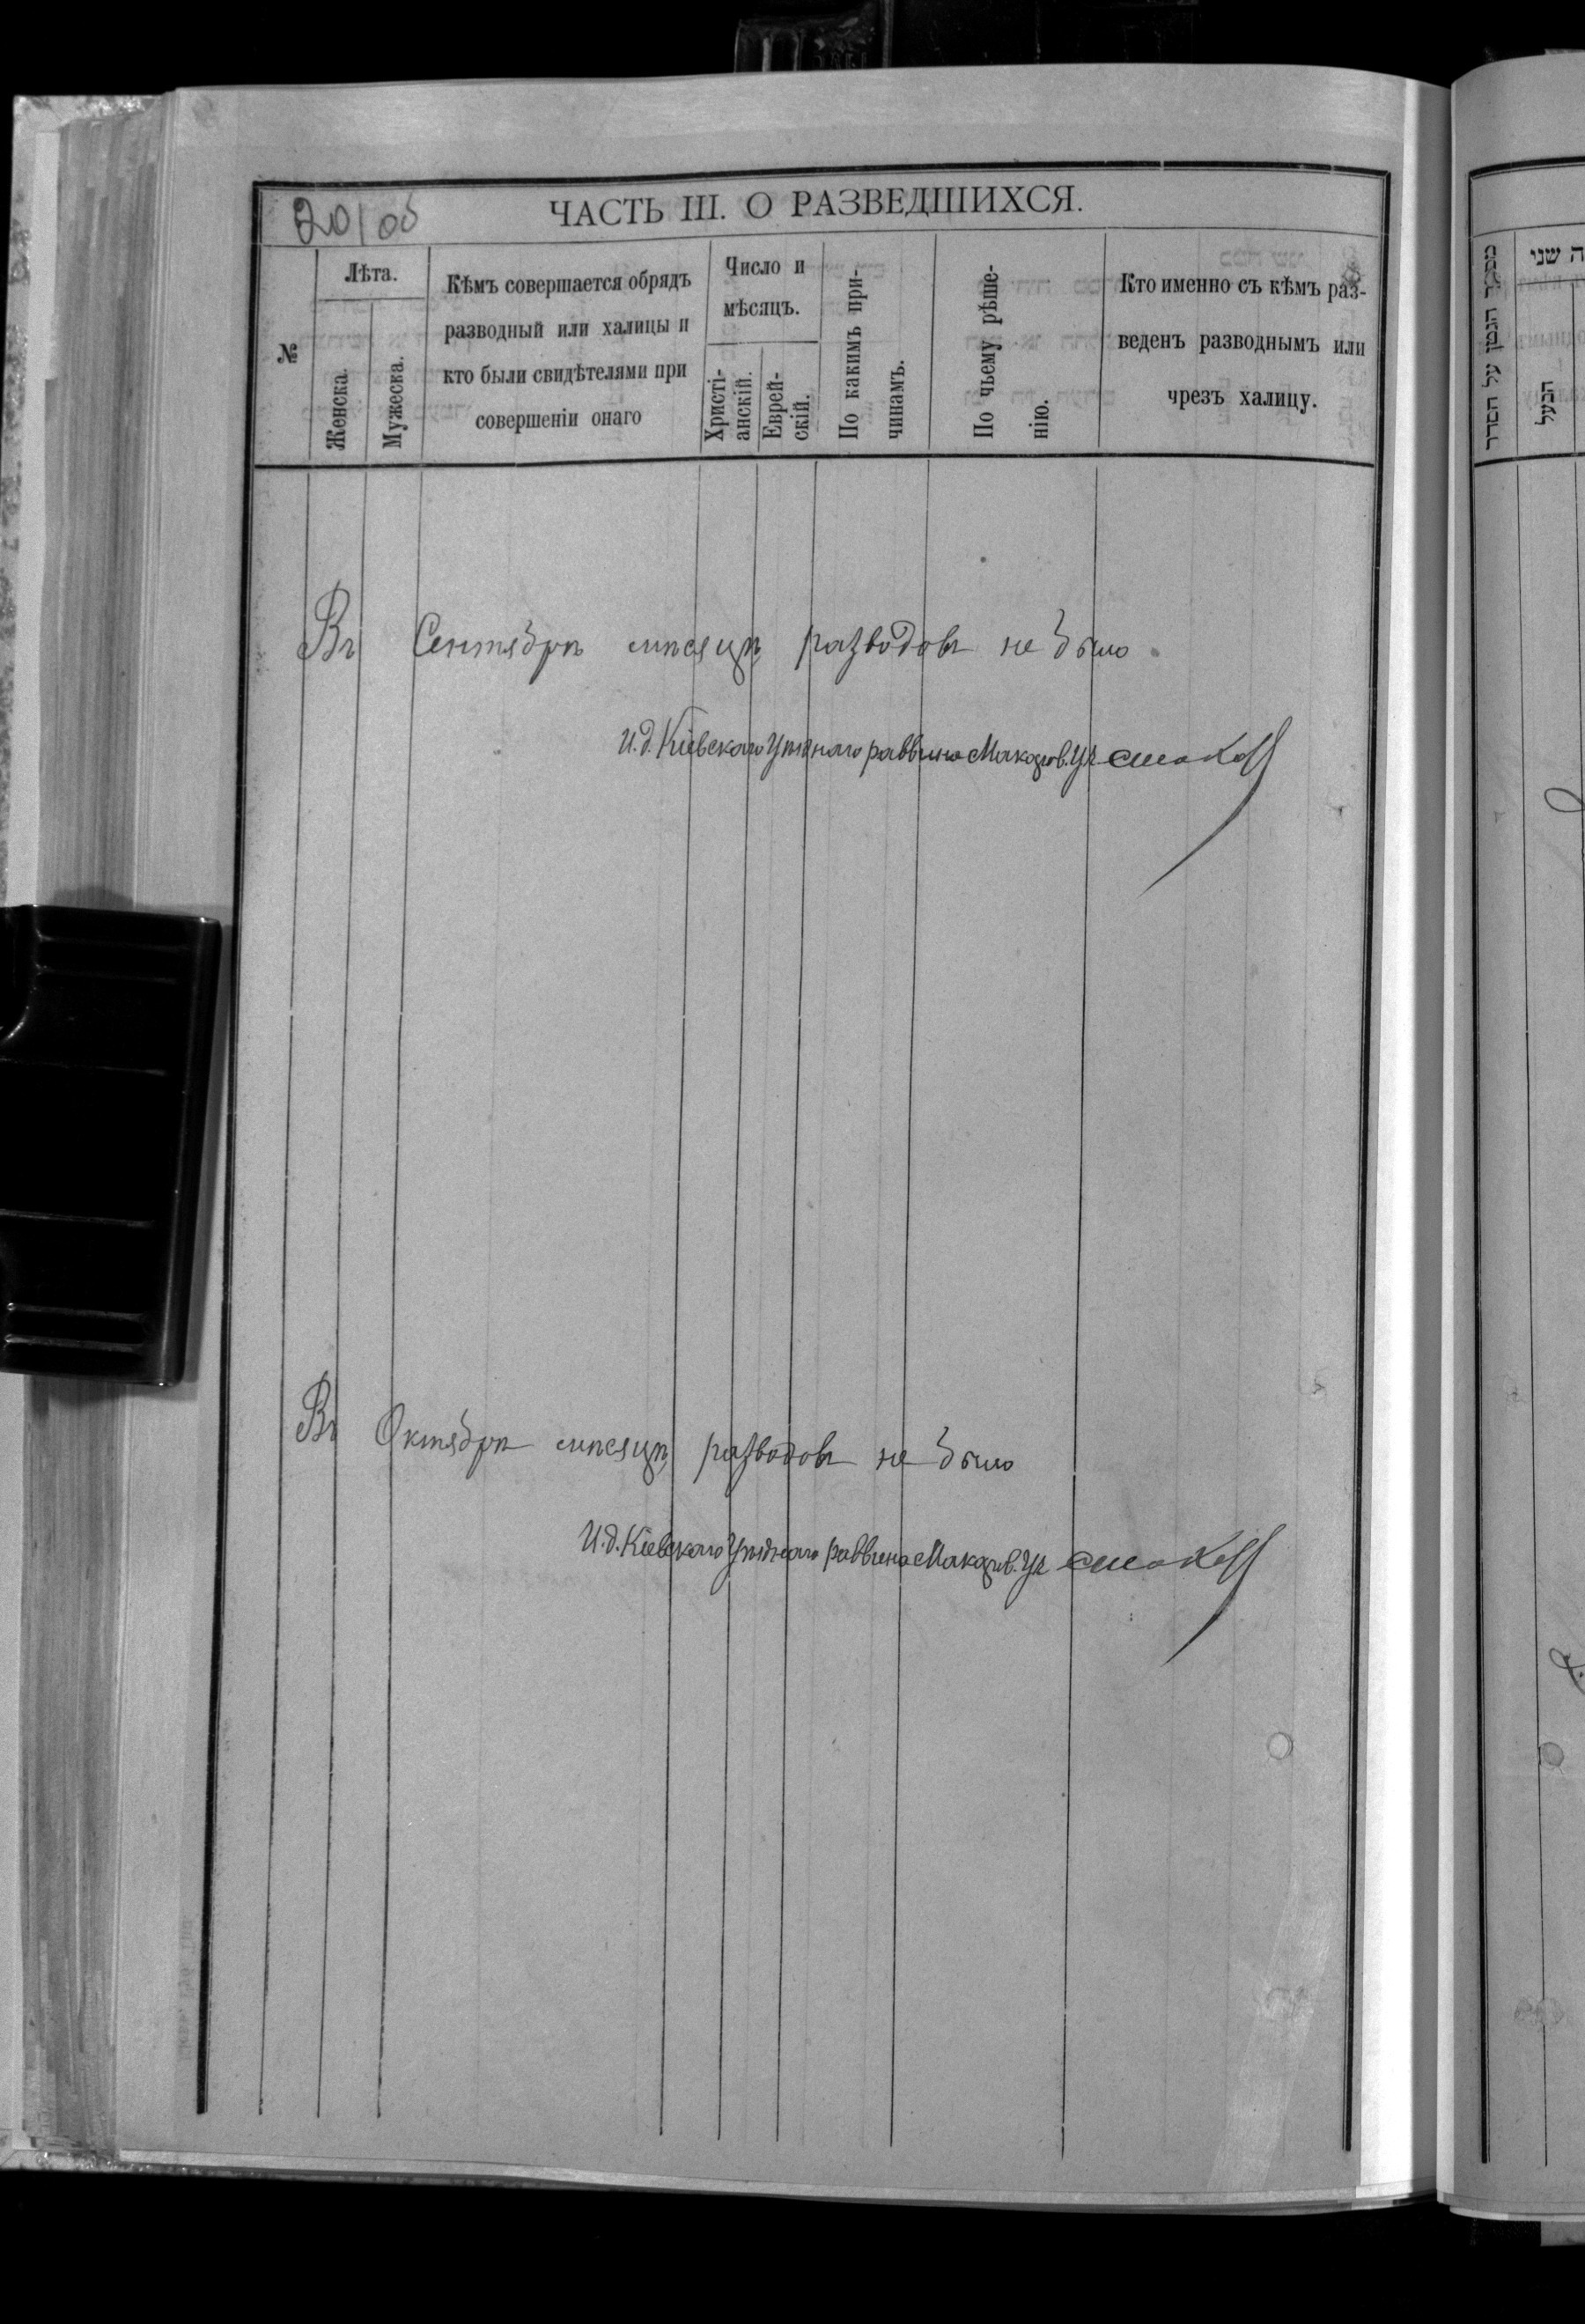 20 об
ЧАСТЬ III. О РАЗВЕДШИХСЯ.
№
Лѣта.
Женска.
Мужеска.
Кѣмъ совершается обрядъ
разводный или халицы и
кто были свидѣтелями при
совершеніи онаго
Число и
мѣсяцъ.
Христі-
анскій.
Еврей-
скій.
По какимъ при-
чинамъ.
По чьему рѣше-
нію.
Кто именно съ кѣмъ раз-
веденъ разводнымъ или
чрезъ халицу.
Въ Сентябрѣ мѣсяцѣ разводовъ не было.
И.д. Кіевскаго Уѣзднаго раввина Макаров. Уч
Въ Октябрѣ мѣсяцѣ разводовъ не было
И.д. Кіевскаго Уѣзднаго раввина Макаров. Уч
מספר הנמן על הסדר
ה שני
הבעל